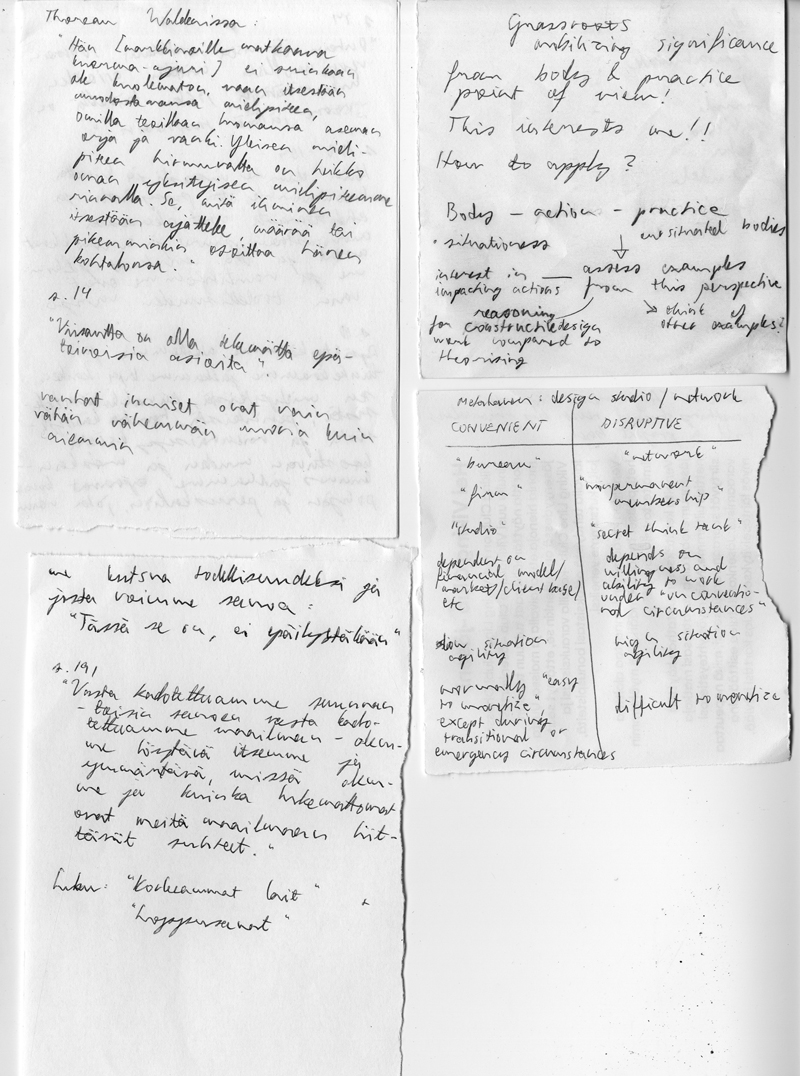 Thoreau Waldenissa:
"Hän [markkinoille matkaava
kuorma-ajuri] ei suinkaan
ole kuolematon, vaan itsestään
muodostamansa mielipiteen,
omilla teoillaan luomansa aseman
orja ja vanki. Yleisen mieli-
piteen hirmuvalta on heikko
oman yksityisen mielipiteemme
rinnalla. Se, mitä ihminen
itsestään ajattelee, määrää tai
pikemminkin osoittaa hänen
kohtalonsa."
s. 14
"Viisautta on olla tekemättä epä-
toivoisia asioita".
vanhat ihmiset ovat vain
vähän vähemmän nuoria kuin
aiemmin
me kutsua todellisuudeksi ja
josta voimme sanoa:
"Tässä se on, ei epäilystäkään"
s. 191
"Vasta kadotettuamme suunnan
- toisin sanoen vasta kado-
tettuamme maailman - alam-
me löytää itsemme ja
ymmärtää, missä olem-
me ja kuinka lukemattomat
ovat meitä maailmaan liit-
tävät suhteet."
Luku: "Korkeammat lait"
"Loppusanat"
Grassroots
mobilizing significance
from body & practice
point of view!
This interests me!!
How to apply?
Body - action - practice
• situationess
unsituated bodies
interest in — assess examples
impacting actions from this perspective
reasoning
for constructiledesign
↘ think of
other examples?
work compared to
theorising
Metahaven: design studio / network
CONVENIENT DISRUPTIVE
"bureau" "network"
"firm" "nonpermanent
membership"
"studio" "secret think tank"
dependent on
financial model/
market/client base/
etc
depends on
willingness and
ability to work
under "unconventio-
nal circumstances"
slow situation
agility
high situation
agility
normally "easy
to monetize",
except during
transitional or
emergency circumstances
difficult to monetize